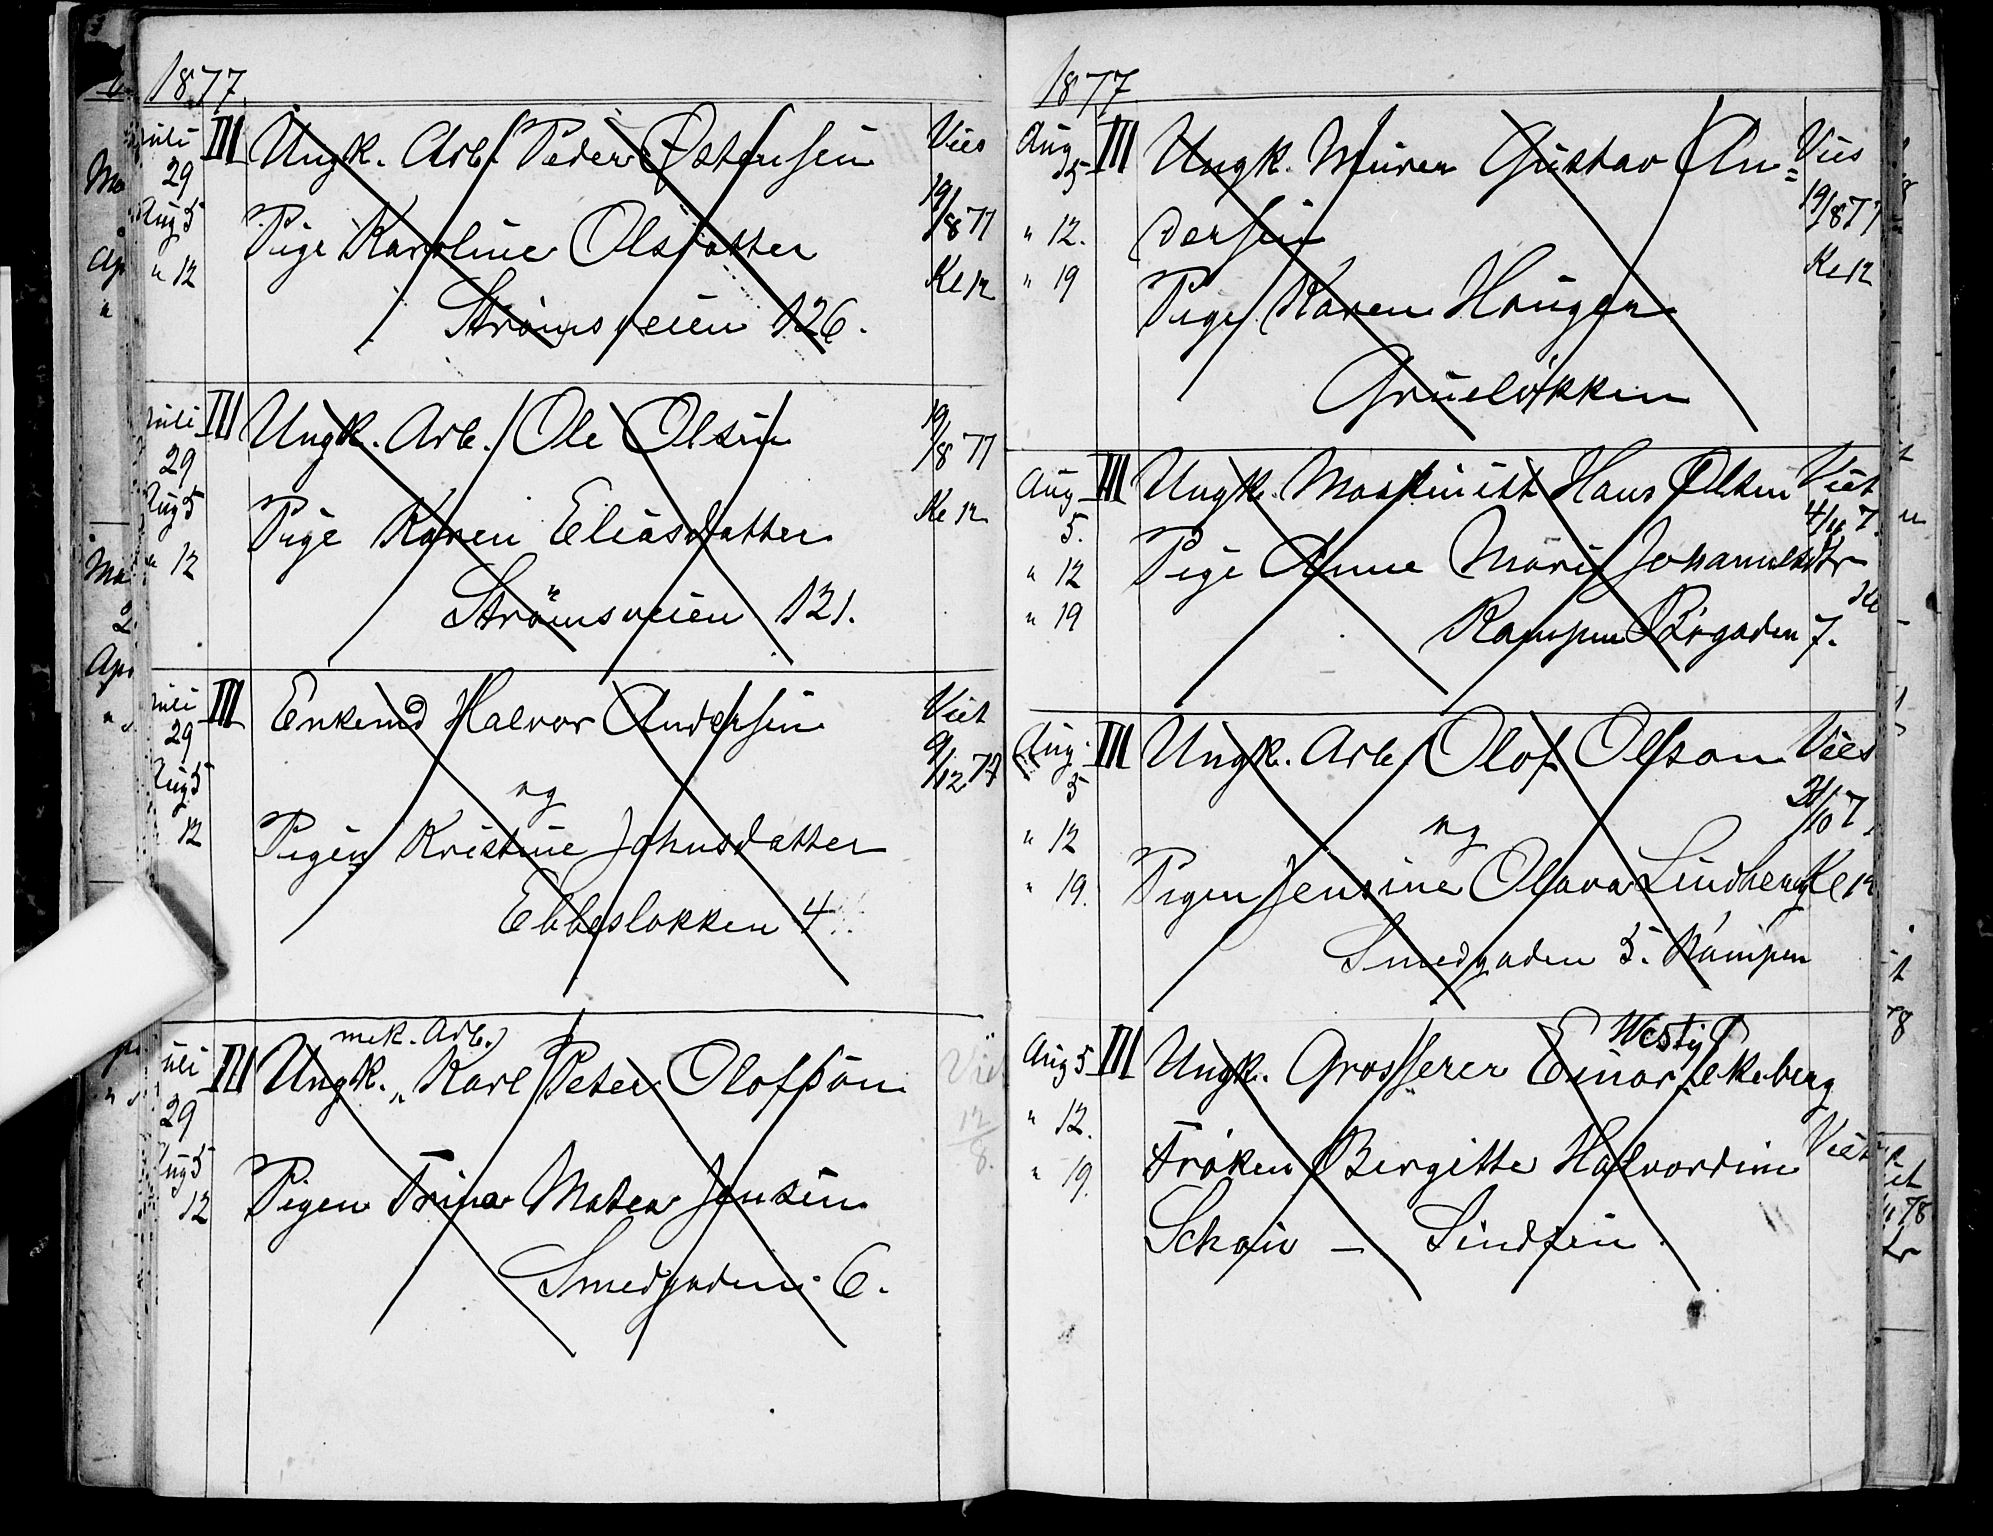 1877.
Juli III Ungk. Arb. Peder Østensen Vies
29
Aug 5 Pige Karoline Olsdatter 19/8 77
" 12 Kl 12
Strømsveien 126.
Juli III Ungk. Arb. Ole Olsen 19/8 77
29
Aug 5 Pige Karen Eliasdatter Kl 12
" 12
Strømsveien 121.
Juli III Enkemd Halvor Andersen Viet
29 9/12 77
Aug 5 og
12 Pigen Kristine Johnsdatter
Ebbesløkken 4
mek. Arb.
Juli III Ungk. " Karl Peter Olofsøn Viet
29 12/8.
Aug 5 Pigen Trina Matea Jensen
12
Smedgaden 6.
1877
Aug III Ungk. Murer Gustav An= Vies
5 19/8 77
" 12. dersen
" 19 Kl 12
Pige Karen Haugen
Grueløkken
Aug III Ungk. Maskinist Hans Olsen Viet
5. 4/11 7
" 12 Pige Anne Marie Johannesdtr
" 19 Kl
Kampen Bøgaden 7.
Aug. III Ungk. Arb. Olof Olsson Vies
5 /10 7
" 12 og
" 19. Pigen Jensine Olava Lindberg Kl 12
Smedgaden 5. Kampen
Westye
Aug 5 III Ungk. Grosserer Einar Ekeberg
" 12.
" 19. Frøken Birgitte Halvordine Viet
Schøien – Lindsen